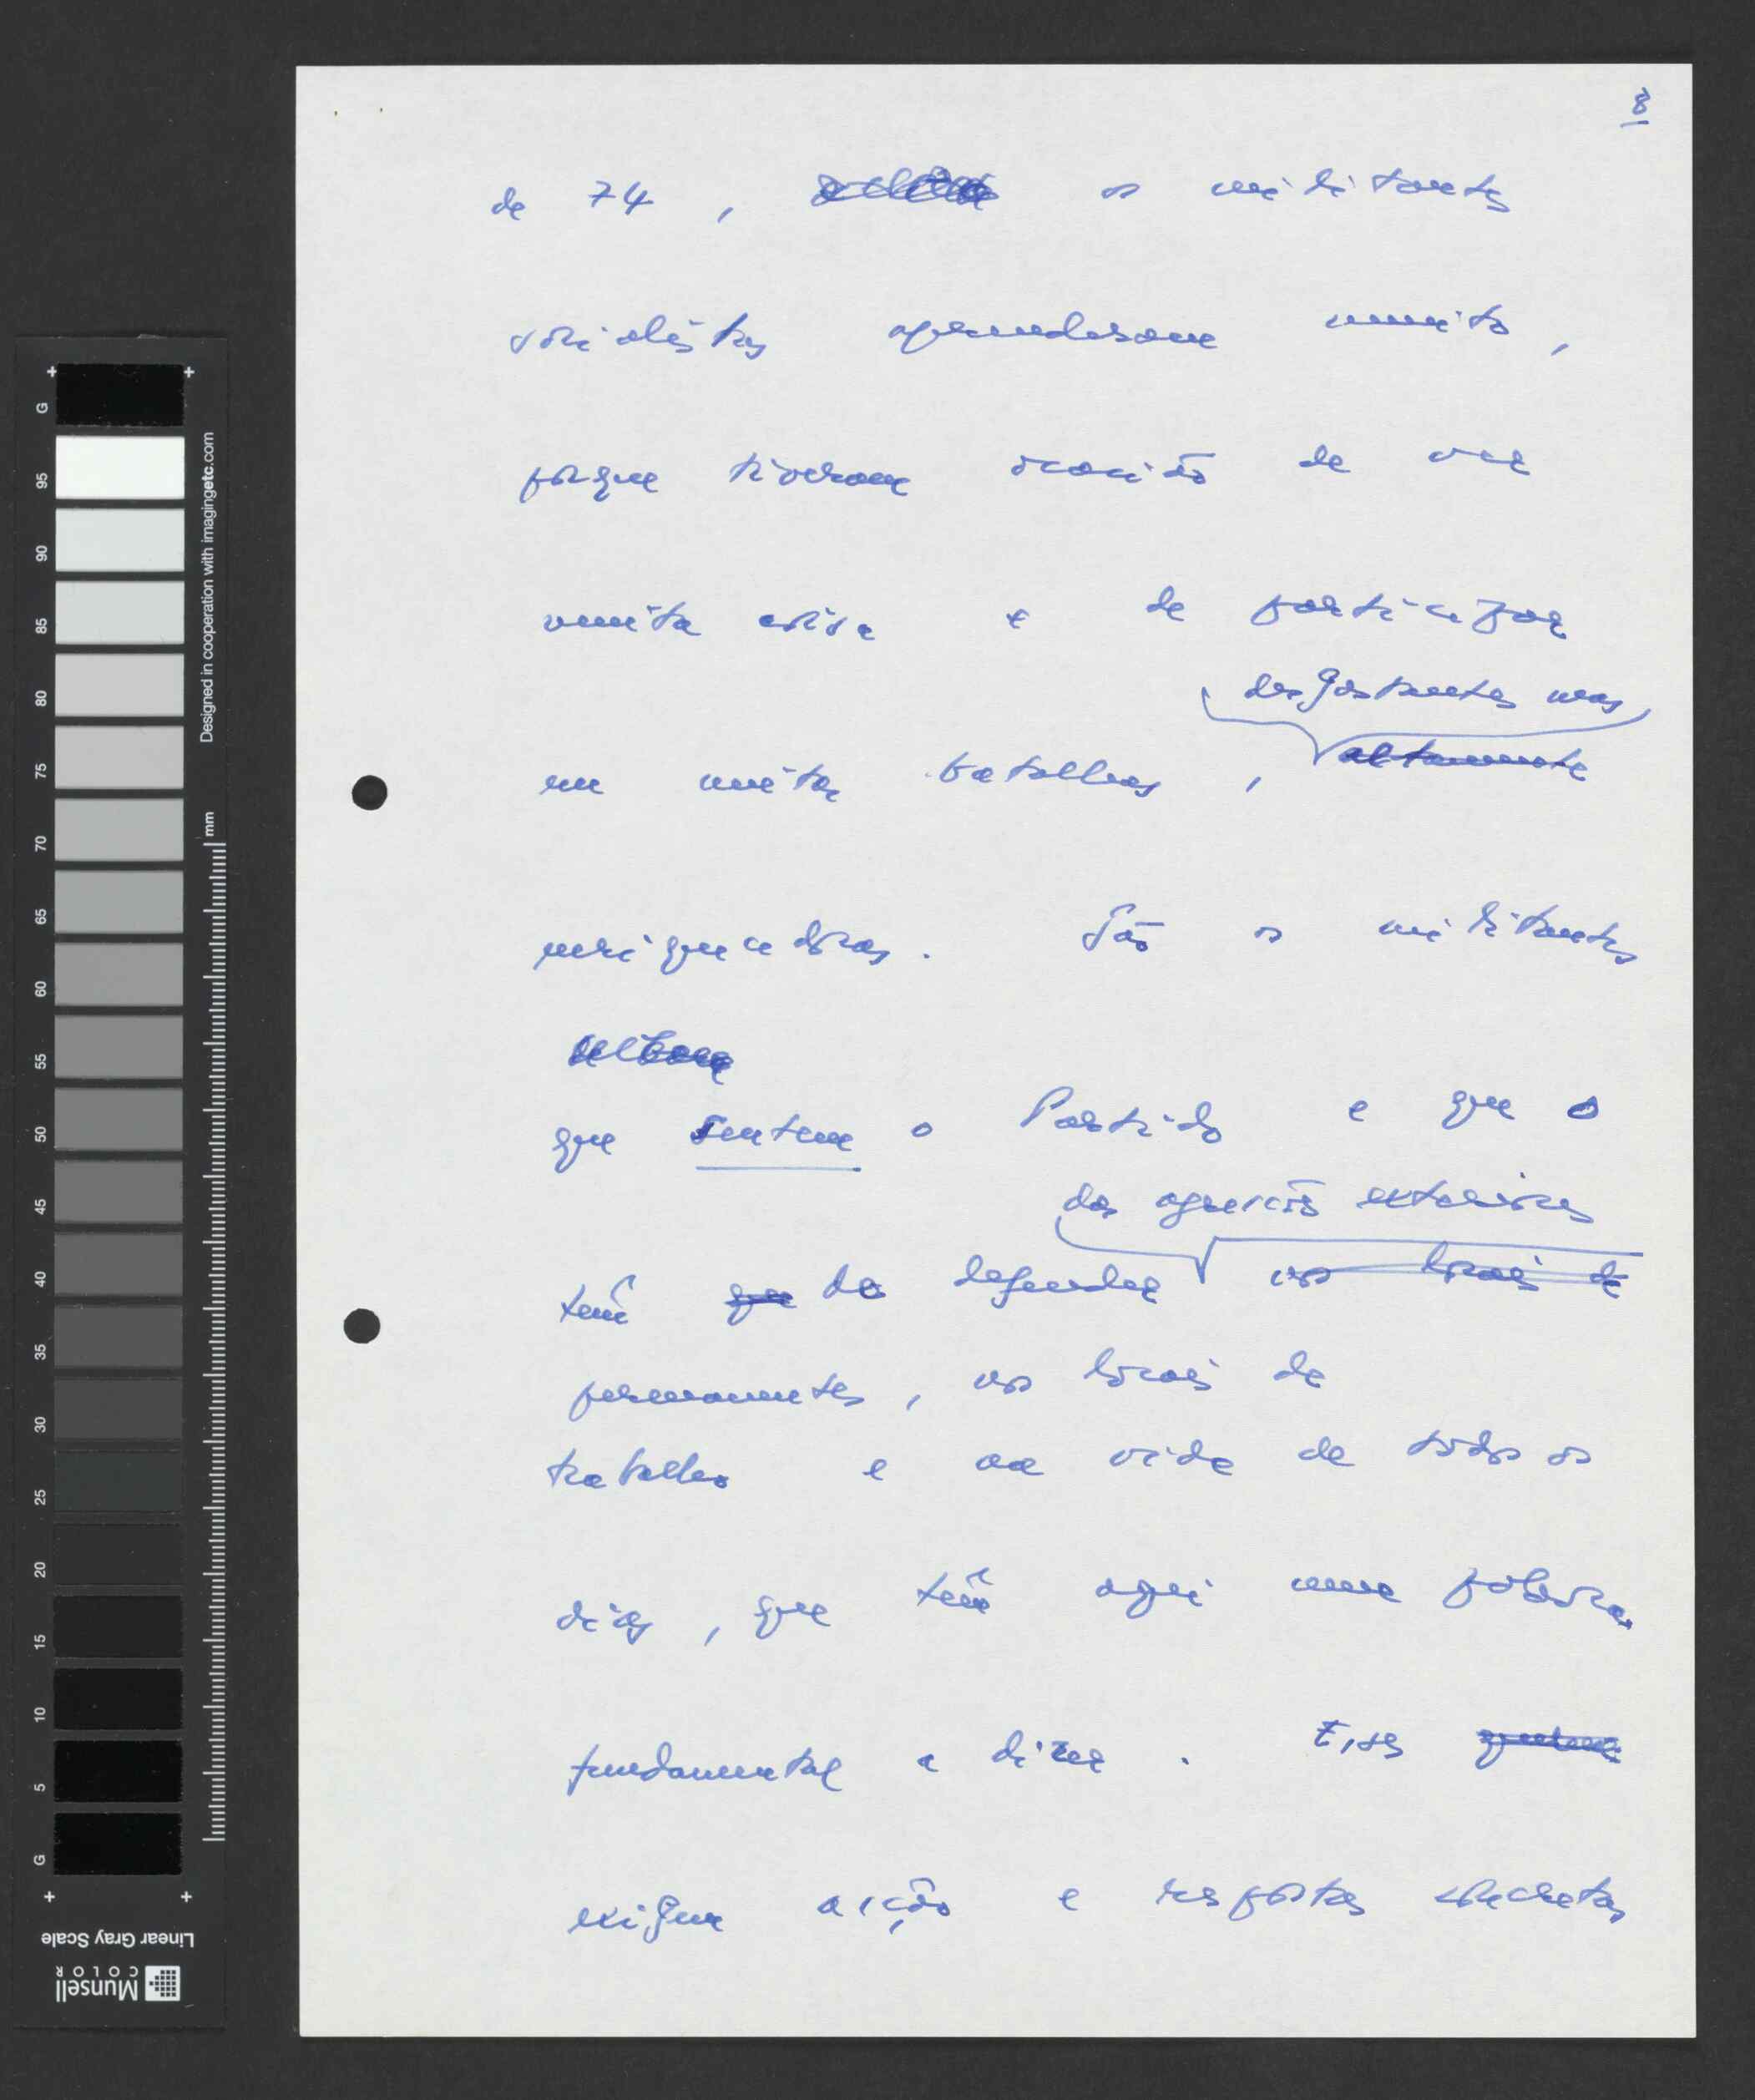 8
de 74, os militantes
socialistas aprenderam muito,
porque tiveram ocasião de ver
muita coisa e de participar
desgastantes mas
em muitas batalhas, altamente
enriquecedoras. São os militantes
que sentem o Partido e que o
das agressões exteriores
têm que de defender nos locais de
permanentes, nos locais de
trabalho e na vida de todos os
dias, que têm aqui uma palavra
fundamental a dizer. Esses
exigem acção e respostas concretas
G 95 90 85 80 75 70 65 60 55 50 45 40 35 30 25 20 15 10 5 G
Designed in cooperation with imagingetc.com
mm
Linear Gray Scale
Munsell
COLOR